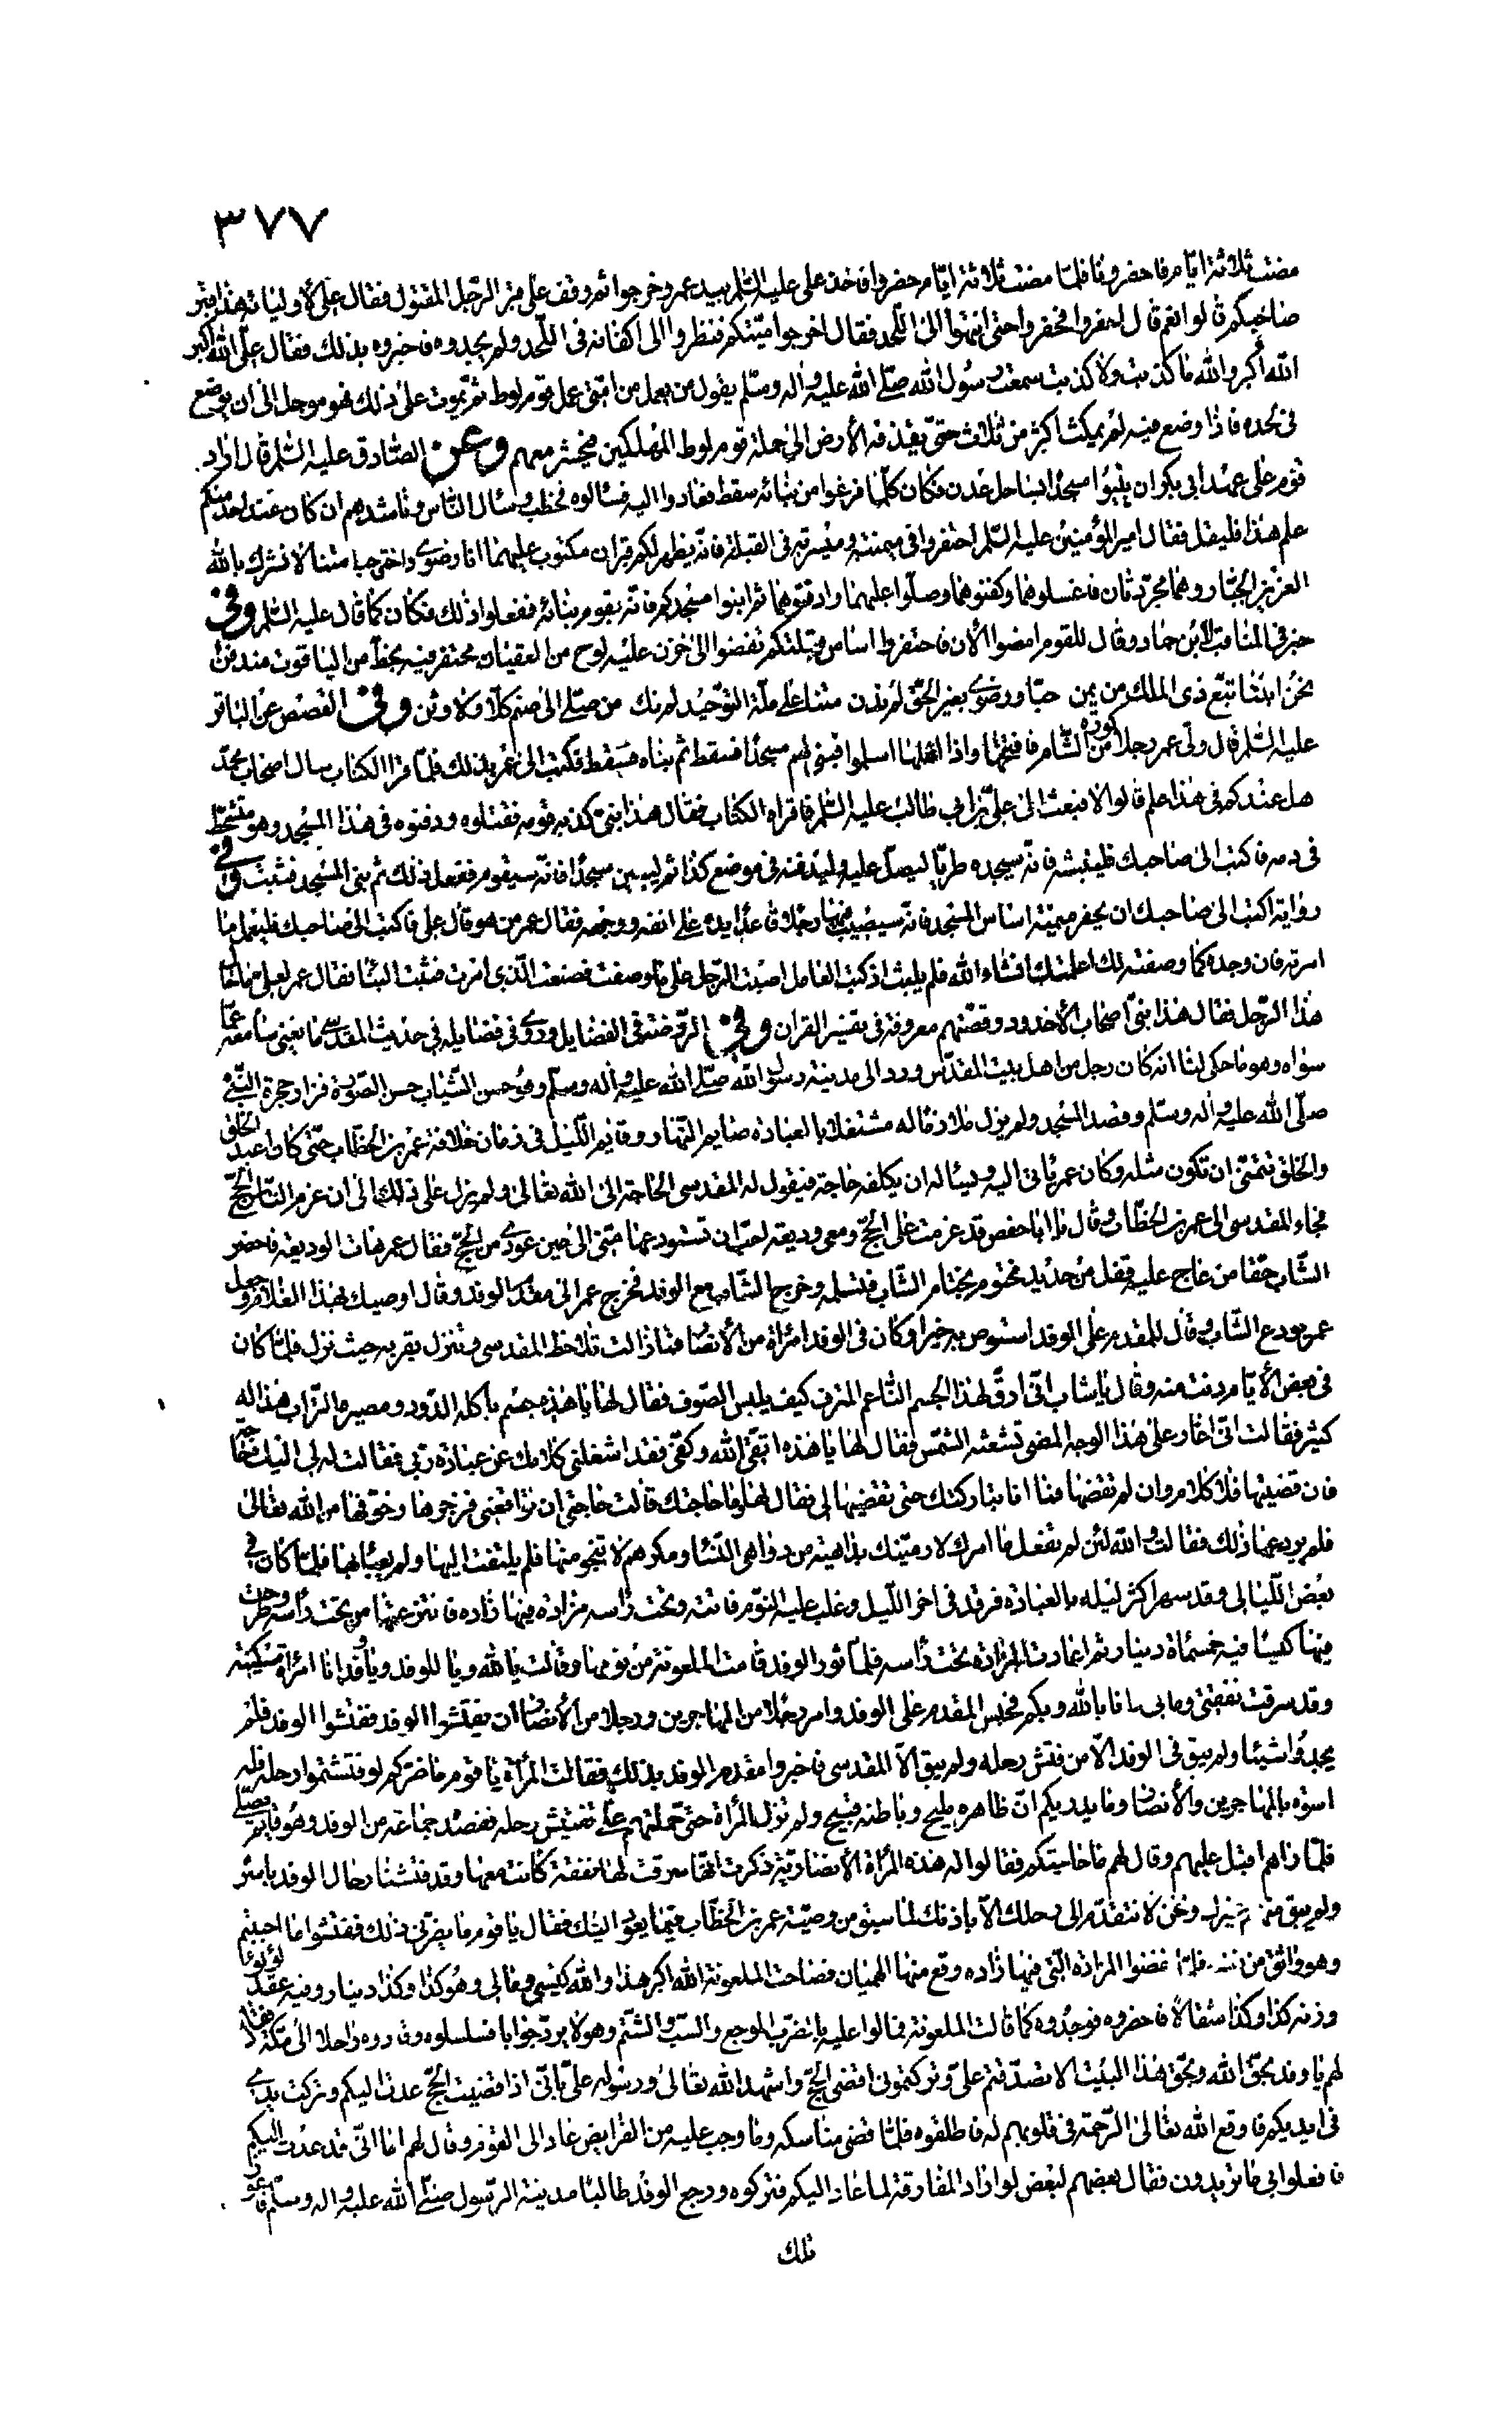 ٣٧٧
مضت ثلاثة ايام فاحضرونا فلما مضت ثلاثة ايام حضروا فاخذ على عليه السلم بيد عمرو خرجوا ثم وقف على قبر الرجل المقتول فقال على لأوليائه هذا قبر
صاحبكم قالوا نعم قال احفروا فحفروا حتى انتهوا الى اللحد فقال اخرجوا ميتكم فنظروا الى اكفانه فى اللحد ولم يجدوه فاخبروه بذلك فقال على الله اكبر
الله أكبر والله ما كذبت ولا كذبت سمعت رسول الله صلى الله عليه واله وسلم يقول من يعمل من امتى عمل قوم لوط ثم يموت على ذلك فهو موجل الى ان يوضع
فى لحده فاذا وضع فيه لم يمكث اكثر من ثلاث حتى يقذفه الأرض الى جملة قوم لوط المهلكين فيحشر معهم وعن الصادق عليه السلم قال اراد
قوم على عهد ابى بكر ان يبنوا مسجدا بساحل عدن فكان كلما فرغوا من بنائه سقط فعادوا اليه فسالوه فخطب وسال الناس وناشدهم ان كان عند احد منكم
علم هذا فليقل فقال امير المؤمنين عليه السلم احتفروا فى ميمنته وميسرته فى القبلة فانه يظهر لكم قبران مكتوب عليهما انا رضوى واختى حبا متنا لا نشرك بالله
العزيز الجبار وهما مجردتان فاغسلوهما وكفنوهما وصلوا عليهما وادفنوهما ثم ابنوا مسجدكم فانه يقوم بنائه ففعلوا ذلك فكان كما قال عليه السلم وفى
خبر فى المناقب لابن حماد وقال للقوم امضوا الأن فاحتفروا اساس قبلتكم تفضوا الى خزن عليه لوح من العقيان محتفر فيه بخط من الياقوت مندفن
نحن ابنتا تبع ذى الملك من يمن حبا ورضوى بغير الحق لم ندن متنا على ملة التوحيد لم نك من صلى الى صنم كلا ولا وثن وفى القصص عن الباقر
عليه السلم قال ولى عمر رجلا كورة من الشام فافتتحها واذا اهلها اسلموا فبنى لهم مسجدا فسقط ثم بناه فسقط فكتب الى عمر بذلك فلما قرا الكتاب سال اصحاب محمد
هل عندكم فى هذا علم قالوا لا فبعث الى على بن ابى طالب عليه السلم فاقراه الكتاب فقال هذا نبى كذبه قومه فقتلوه ودفنوه فى هذا المسجد وهو متشحط
فى دمه فاكتب الى صاحبك فلينبشه فانه سيجده طريا ليصل عليه وليدفنه فى موضع كذا ثم ليبن مسجدا فانه سيقوم ففعل ذلك ثم بنى المسجد فثبت وفى
رواية اكتب الى صاحبك ان يحفر ميمنة اساس المسجد فانه سيصيب فيها رجلا قاعدا يده على انفه ووجهه فقال عمر من هو قال على فاكتب الى صاحبك فليعمل ما
امرته فان وجده كما وصفت لك اعلمتك انشاء الله فلم يلبث اذ كتب العامل اصبت الرجل على ما وصفت فصنعت الذى امرت فثبت البناء فقال عمر لعلى ما حال
هذا الرجل فقال هذا نبى اصحاب الأخدود وقصتهم معروفة فى تفسير القران وفى الروضة فى الفضايل وروى فى فضايله فى حديث المقدسى ما يغنى سامعه عما
سواه وهو ما حكى لنا انه كان رجل من اهل بيت المقدس ورد الى مدينة رسول الله صلى الله عليه واله وسلم وهو حسن الشباب حسن الصورة فزار حجرة النبى
صلى الله عليه واله وسلم وقصد المسجد ولم يزل ملازما له مشتغلا بالعبادة صايم النهار وقايم الليل فى زمان خلافة عمر بن الخطاب حتى كان اعبد الخلق
والخلق تتمنى ان تكون مثله وكان عمر ياتى اليه ويساله ان يكلفه حاجة فيقول له المقدسى الحاجة الى الله تعالى ولم يزل على ذلك الى ان عزم الناس الحج
فجاء المقدسى الى عمر بن الخطاب وقال يا ابا حفص قد عزمت على الحج ومعى وديعة احب ان تستودعها منى الى حين عودى من الحج فقال عمر هات الوديعة فاحضر
الشاب حقا من عاج عليه قفل من حديد مختوم بختام الشاب فتسلمه وخرج الشاب مع الوفد فخرج عمر الى مقدم الوفد وقال اوصيك بهذا الغلام وجعل
عمر يودع الشاب وقال للمقدم على الوفد استوص به خيرا وكان فى الوفد امراة من الأنصار فما زالت تلاحظ المقدسى وتنزل بقربه حيث نزل فلما كان
فى بعض الأيام دنت منه وقال يا شاب انى ارق لهذا الجسم الناعم المترف كيف يلبس الصوف فقال لها يا هذه جسم ياكله الدود ومصيره التراب هذا له
كثير فقالت انى اغار على هذا الوجه المضى تشعثه الشمس فقال لها يا هذه اتقى الله وكفى فقد اشغلنى كلامك عن عبادة ربى فقالت له لى اليك حاجة
فان قضيتها فلا كلام وان لم تقضها فما انا بتاركتك حتى تقضيها لى فقال لها وما حاجتك قالت حاجتى ان تواقعنى فزجرها وخوفها من الله تعالى
فلم يردعها ذلك فقالت والله لئن لم تفعل ما امرك لارمينك بداهية من دواهى النساء ومكرهم لا تنجو منها فلم يلتفت اليها ولم يعبا بها فلما كان فى
بعض الليالى وقد سهر اكثر ليله بالعبادة فرقد فى اخر الليل وغلب عليه النوم فاتته وتحت راسه مزادة فيها زاده فانتزعتها من تحت راسه وطرحت
فيها كيسا فيه خمسمائة دينار ثم اعادت المزادة تحت راسه فلما ثور الوفد قامت الملعونة من نومها وقالت يا لله ويا للوفد ويا وفد انا امراة مسكينة
وقد سرقت نفقتى ومالى وانا بالله وبكم فجلس المقدم على الوفد وامر رجلا من المهاجرين ورجلا من الأنصار ان يفتشوا الوفد ففتشوا الوفد فلم
يجدوا شيئا ولم يبق فى الوفد الا من فتش رحله ولم يبق الا المقدسى فاخبروا مقدم الوفد بذلك فقالت المرأة يا قوم ما ضركم لو فتشتموا رحله فله
اسوة بالمهاجرين والأنصار وما يدريكم ان ظاهره مليح وباطنه قبيح ولم تزل المراة حتى حملتهم على تفتيش رحله فقصد جماعة من الوفد وهو قايم يصلى
فلما راهم اقبل عليهم وقال لهم ما حاجتكم فقالوا له هذه المرأة الأنصارية ذكرت انها سرقت لها نفقة كانت معها وقد فتشنا رحال الوفد باسره
ولم يبق منهم غيرك ونحن لا نتقدم الى رحلك الا باذنك لما سبق من وصية عمر بن الخطاب فيما يعود اليك فقال يا قوم ما يضرنى ذلك ففتشوا ما احببتم
وهو واثق من نفسه فلما نفضوا المزادة التى فيها زاده وقع منها الهميان فصاحت الملعونة الله اكبر هذا والله كيسى ومالى وهو كذا وكذا دينار وفيه عقد لؤلؤ
وزنه كذا وكذا مثقالا فاحضروه فوجدوه كما قالت الملعونة فمالوا عليه بالضرب الموجع والسب والشتم وهو لا يرد جوابا فسلسلوه وقادوه راجلا الى مكة فقال
لهم يا وفد بحق الله وبحق هذا البيت الا تصدقتم على وتركتمونى اقضى الحج واشهد الله تعالى ورسوله على بانى اذا قضيت الحج عدت اليكم وتركت يدى
فى ايديكم فاوقع الله تعالى الرحمة فى قلوبهم له فاطلقوه فلما قضى مناسكه وما وجب عليه من الفرايض عاد الى القوم وقال لهم اما انى قد عدت اليكم
فافعلوا بى ما تريدون فقال بعضهم لبعض لو اراد المفارقة لما عاد اليكم فتركوه ورجع الوفد طالبا مدينة الرسول صلى الله عليه واله وسلم
تلك